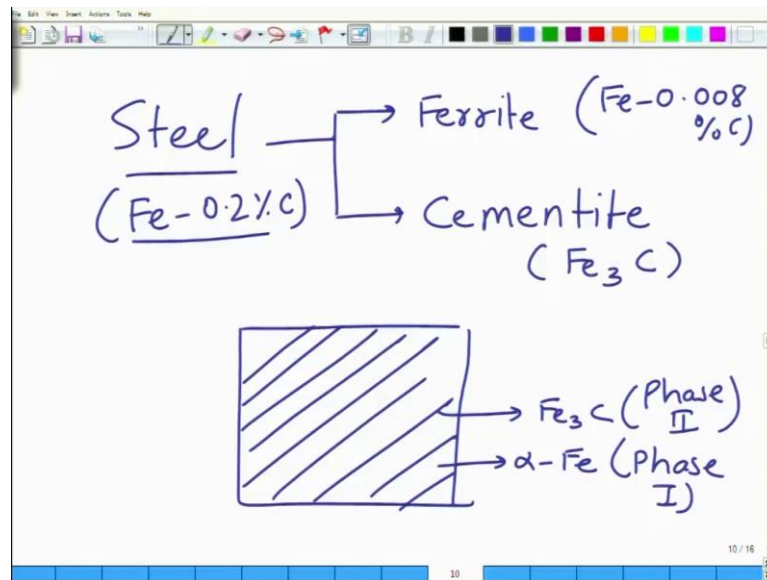 File Edit View Insert Actions Tools Help
B I
Steel → Ferrite (Fe-0.008 % C)
(Fe-0.2% C) → Cementite
(Fe₃C)
→ Fe₃C (Phase II)
→ α-Fe (Phase I)
10 / 16
10